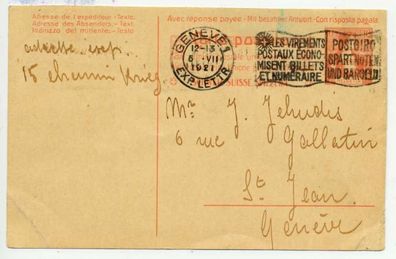 Adresse de l'expéditeur - Texte.
Adresse des Absenders. - Text.
Indirizzo del mittente. - Testo
Avec réponse payée - Mit bezahlter Antwort - Con risposta pagata
GENÈVE 1
12-13
6 · VII
1921
EXP. LETTR.
LES VIREMENTS
POSTAUX ÉCONO-
MISENT BILLETS
ET NUMÉRAIRE
POSTGIRO
SPART NOTEN
UND BARGELD
15 chemin Krieg.
Mr J. Jehudis
6 rue Gallatin
St Jean
Genève